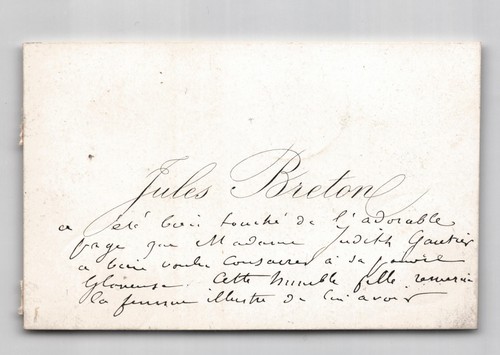 Jules Breton
a été bien touché de l'adorable
page que Madame Judith Gautier
a bien voulu consacrer à sa pauvre
Glaneuse. Cette humble fille remercie
la femme illustre de lui avoir